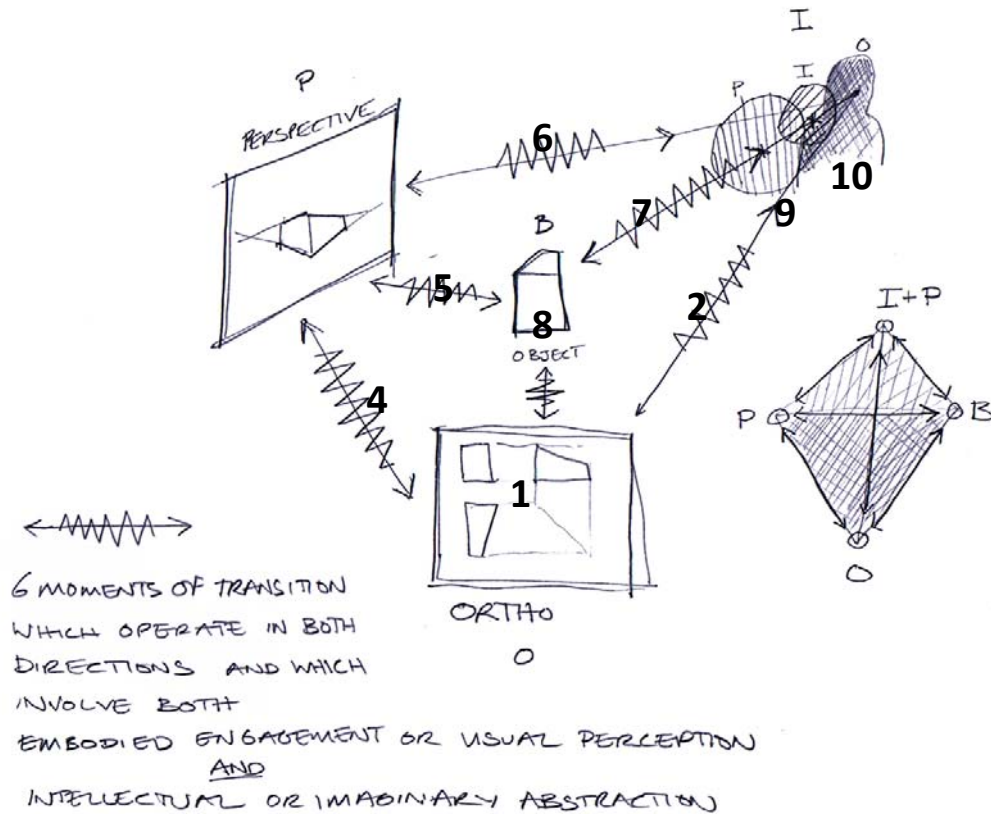 I
O
I
P
P
PERSPECTIVE
6
10
7
9
B
5
8
2
OBJECT
4
I+P
P
B
1
O
ORTHO
O
6 MOMENTS OF TRANSITION
WHICH OPERATE IN BOTH
DIRECTIONS AND WHICH
INVOLVE BOTH
EMBODIED ENGAGEMENT OR USUAL PERCEPTION
AND
INTELLECTUAL OR IMAGINARY ABSTRACTION